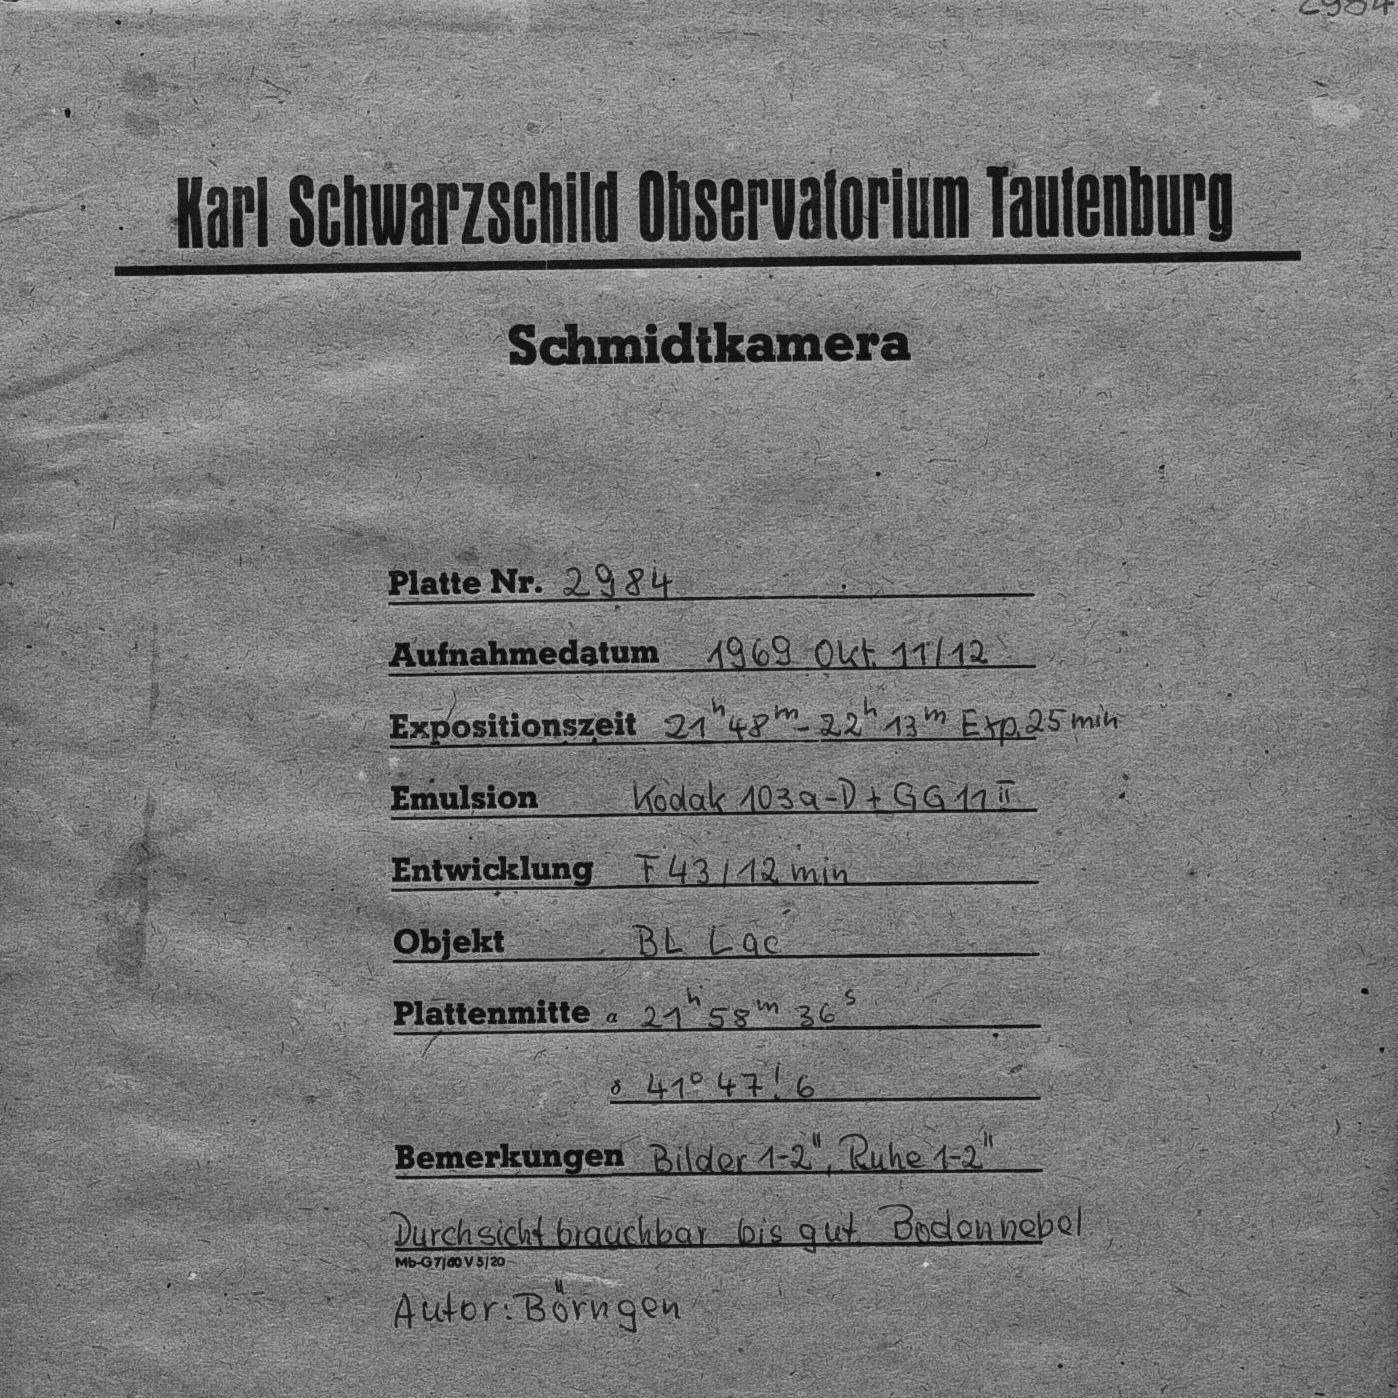 2984
Karl Schwarzschild Observatorium Tautenburg
Schmidtkamera
Platte Nr. 2984
Aufnahmedatum 1969 Okt. 11/12
Expositionszeit 21ʰ48ᵐ-22ʰ13ᵐ Exp. 25 min
Emulsion Kodak 103a-D + GG11 II
Entwicklung F43/12 min
Objekt BL Lac
Plattenmitte α 21ʰ 58ᵐ 36ˢ
δ 41° 47!6
Bemerkungen Bilder 1-2", Ruhe 1-2"
Durchsicht brauchbar bis gut Bodennebel
Mb-G 7/60 V 5/20
Autor: Börngen